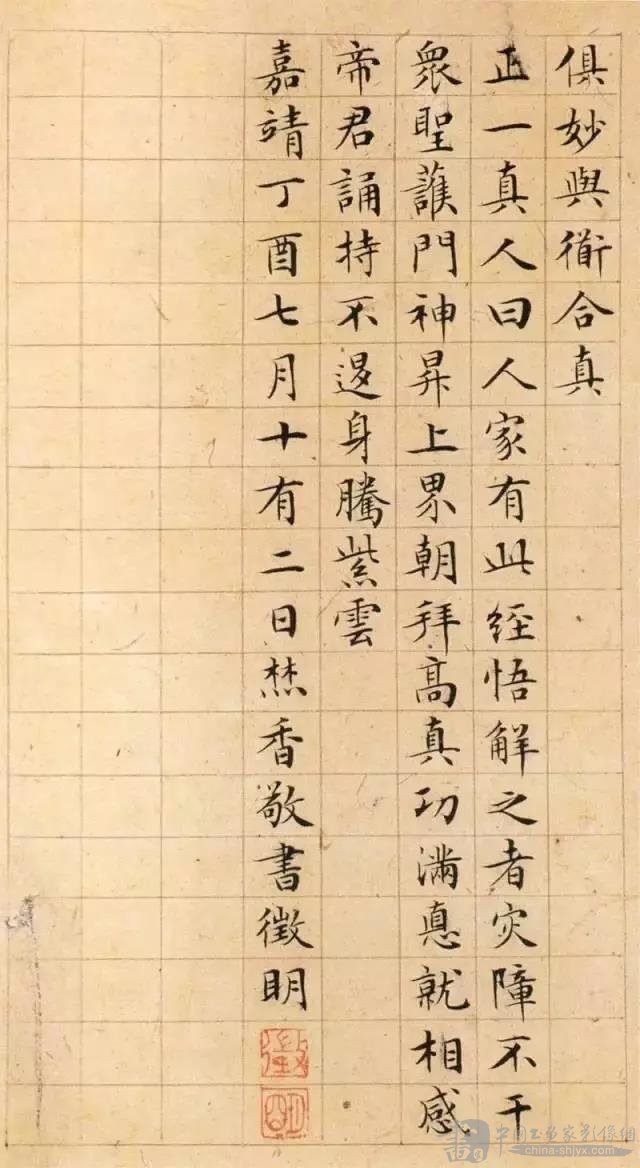 俱妙與衜合真
正一真人曰人家有此經悟解之者灾障不干
衆聖護門神昇上界朝拜高真功滿悳就相感
帝君誦持不退身騰紫雲
嘉靖丁酉七月十有二日焚香敬書徵明
徵
明
中國書畫家影像網
china-shjyx.com